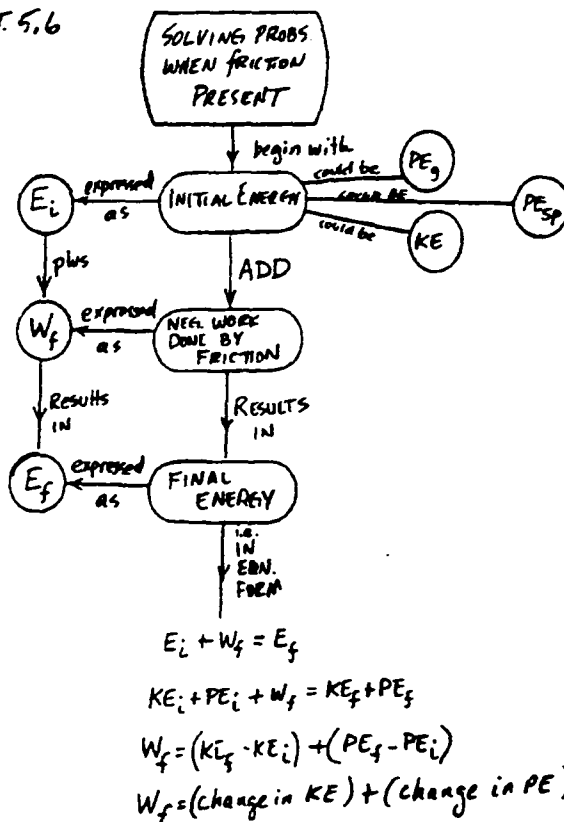 T. 5,6
SOLVING PROBS.
WHEN FRICTION
PRESENT
begin with
INITIAL ENERGY
could be
PEg
could BE
PEsp
could be
KE
expressed
as
Ei
plus
ADD
NEG. WORK
DONE BY
FRICTION
expressed
as
Wf
Results
IN
RESULTS
IN
FINAL
ENERGY
expressed
as
Ef
i.e.
IN
EQN.
FORM
Ei + Wf = Ef
KEi + PEi + Wf = KEf + PEf
Wf = (KEf - KEi) + (PEf - PEi)
Wf = (change in KE) + (change in PE)